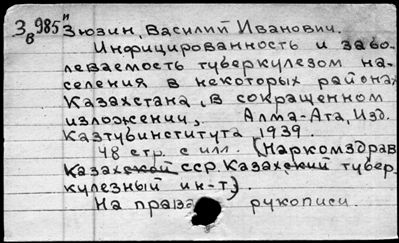 З 985
в
"Зюзин, Василий Иванович.
Инфицированность и забо-
леваемость туберкулезом на-
селения в некоторых районах
Казахстана, (в сокращенном
изложении). Алма-Ата, Изд.
Казтубинститута 1939.
48 стр. с илл. (Наркомздрав
Казахской сср. Казахский тубер-
кулезный ин-т).
На правах рукописи.